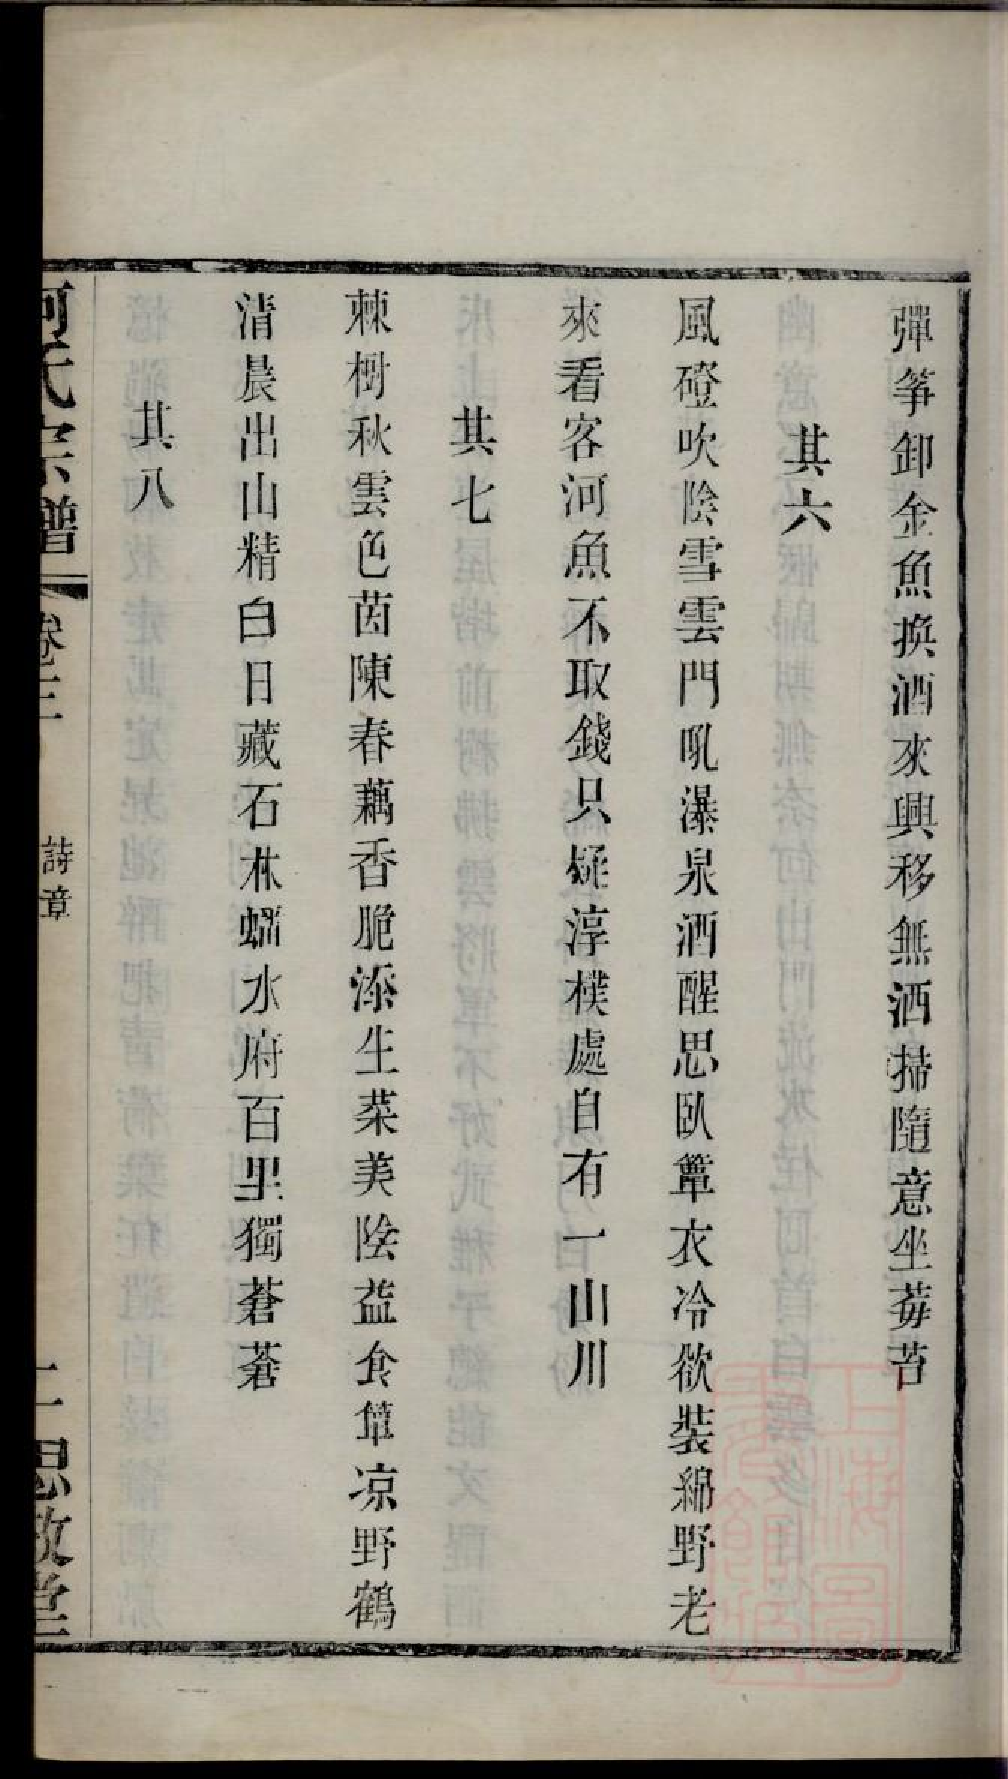 彈筝卸金魚換酒來興移無洒掃隨意坐莓苔
其六
風磴吹陰雪雲門吼瀑泉酒醒思臥簟衣冷欲裝綿野老
來看客河魚不取錢只疑淳樸處自有一山川
其七
棘樹秋雲色茵陳春藕香脆添生菜美陰益食簞凉野鶴
清晨出山精白日藏石林蟠水府百里獨蒼蒼
其八
何氏宗譜
卷三
詩章
二
思敬堂